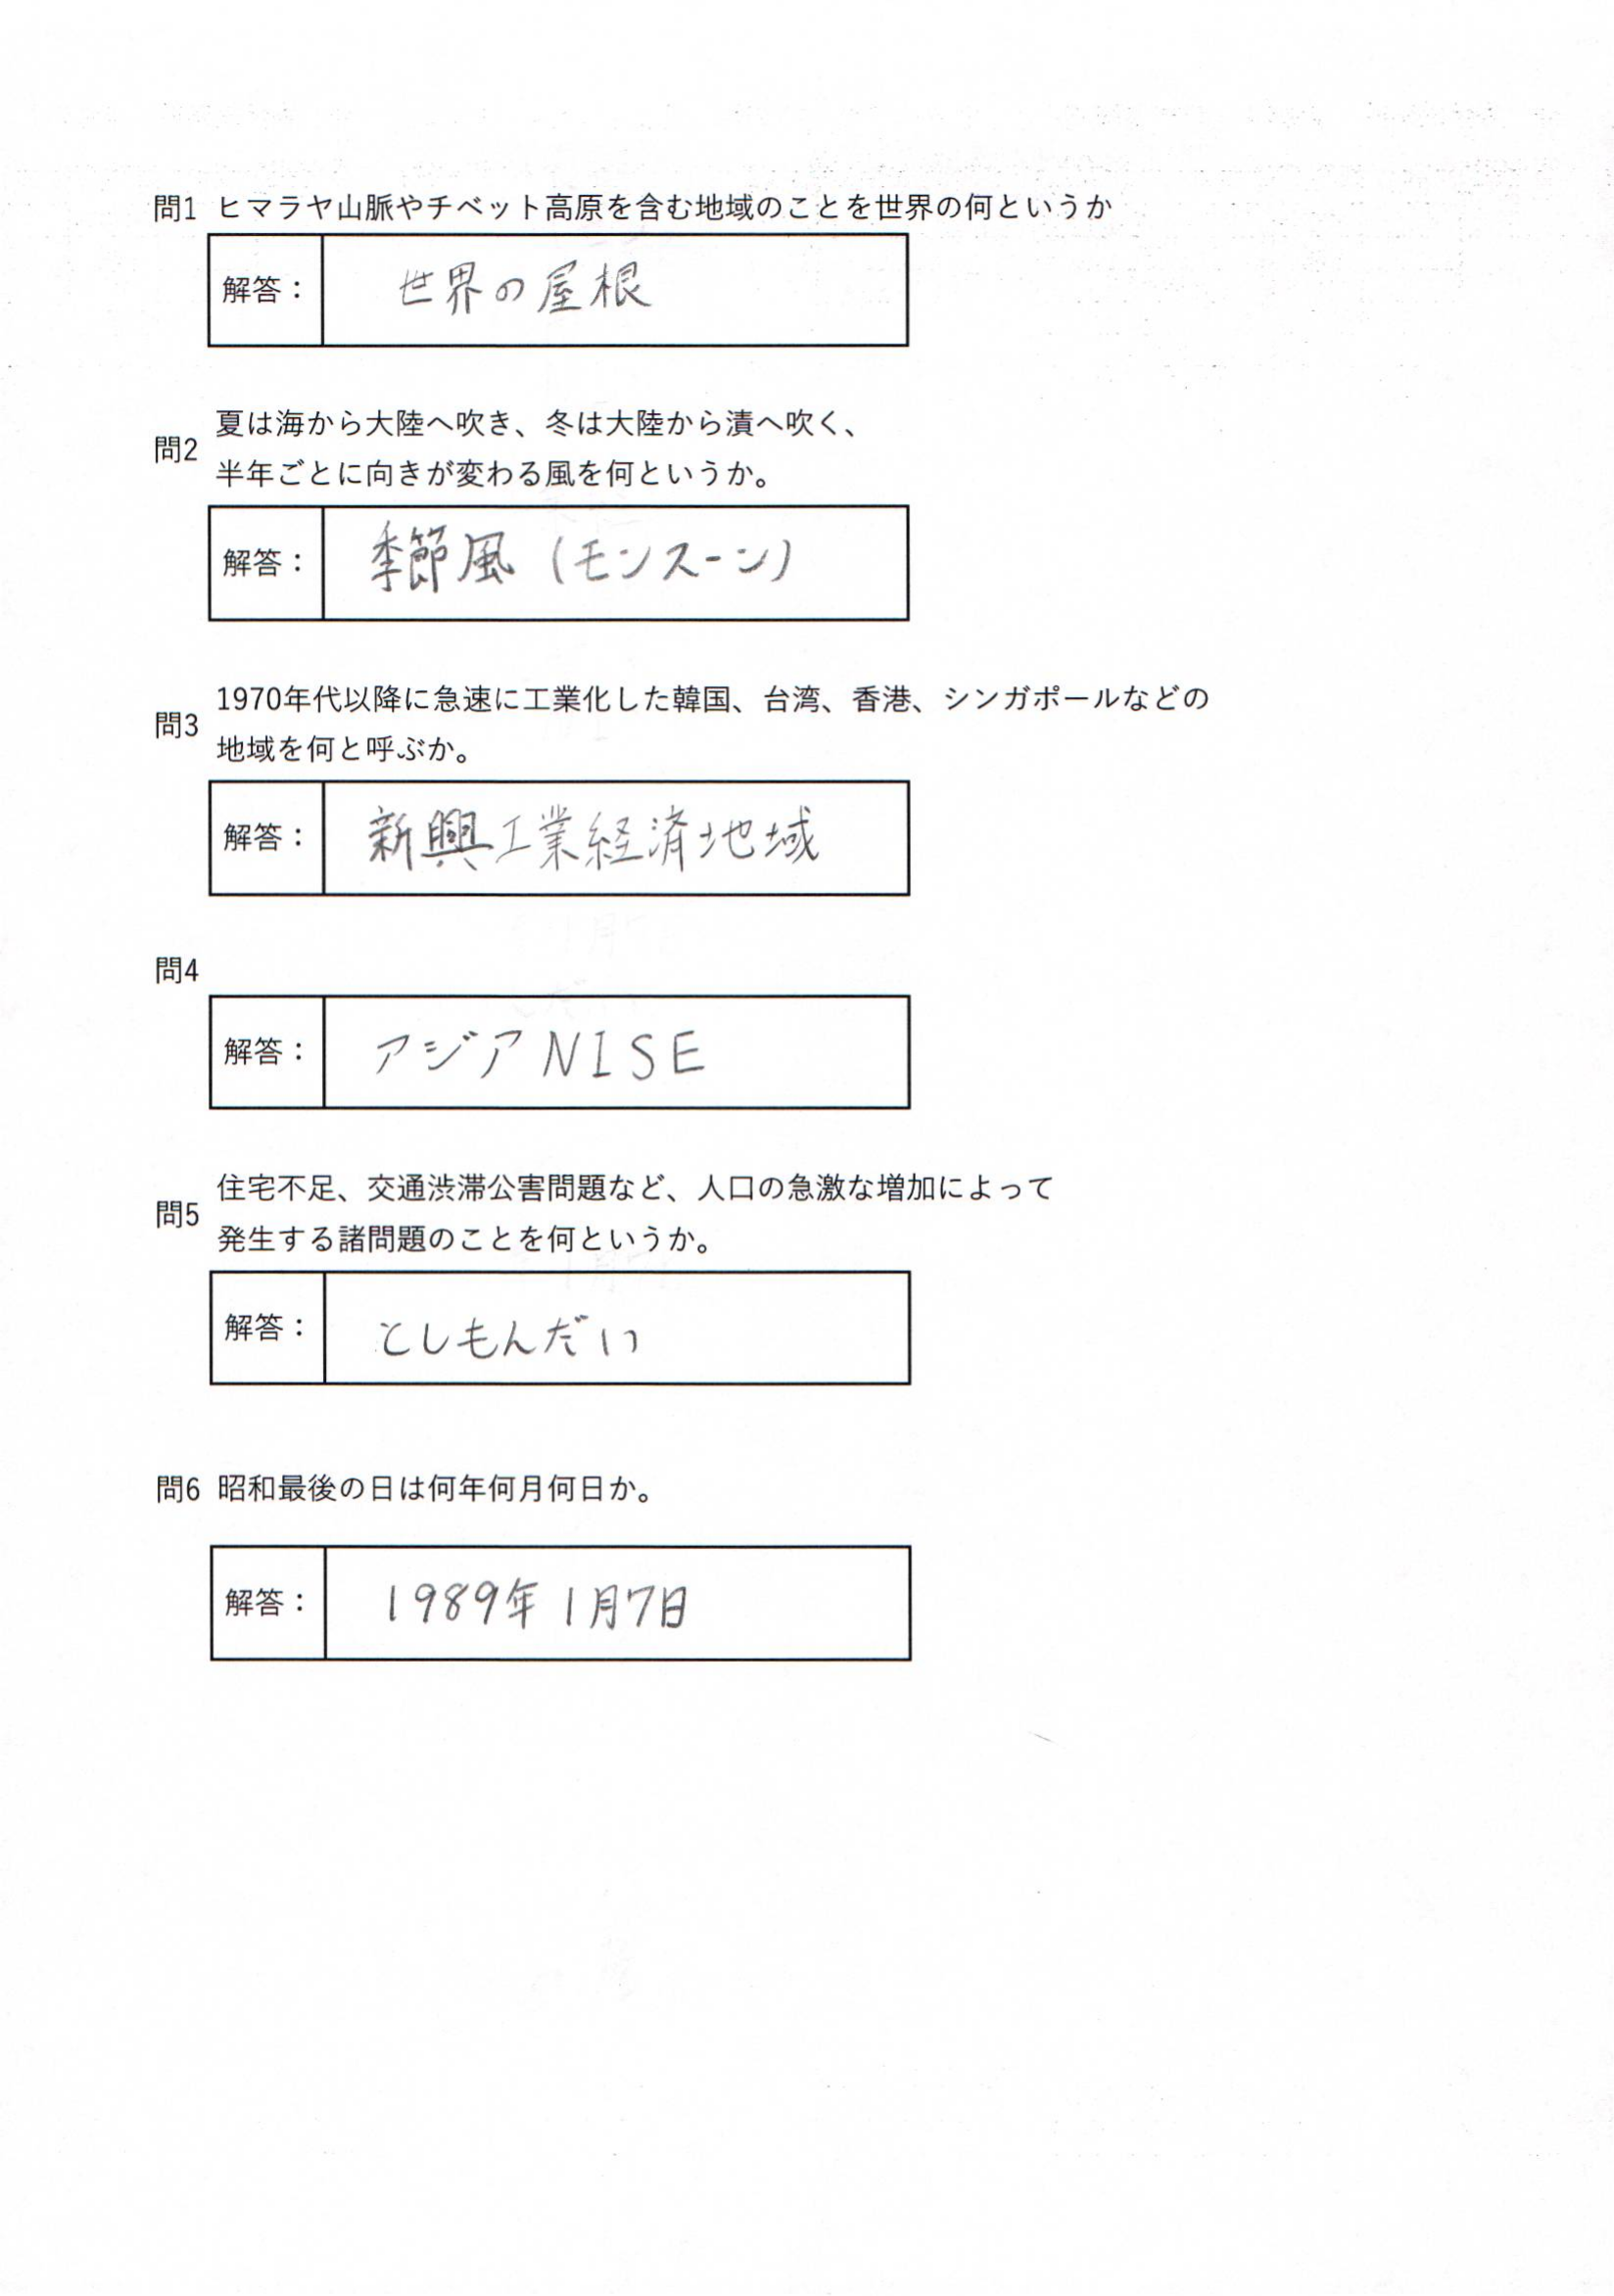 問1 ヒマラヤ山脈やチベット高原を含む地域のことを世界の何というか
解答： 世界の屋根
夏は海から大陸へ吹き、冬は大陸から漬へ吹く、
問2
半年ごとに向きが変わる風を何というか。
解答： 季節風（モンスーン）
1970年代以降に急速に工業化した韓国、台湾、香港、シンガポールなどの
問3
地域を何と呼ぶか。
解答： 新興工業経済地域
問4
解答： アジアNISE
住宅不足、交通渋滞公害問題など、人口の急激な増加によって
問5
発生する諸問題のことを何というか。
解答： としもんだい
問6 昭和最後の日は何年何月何日か。
解答： 1989年1月7日